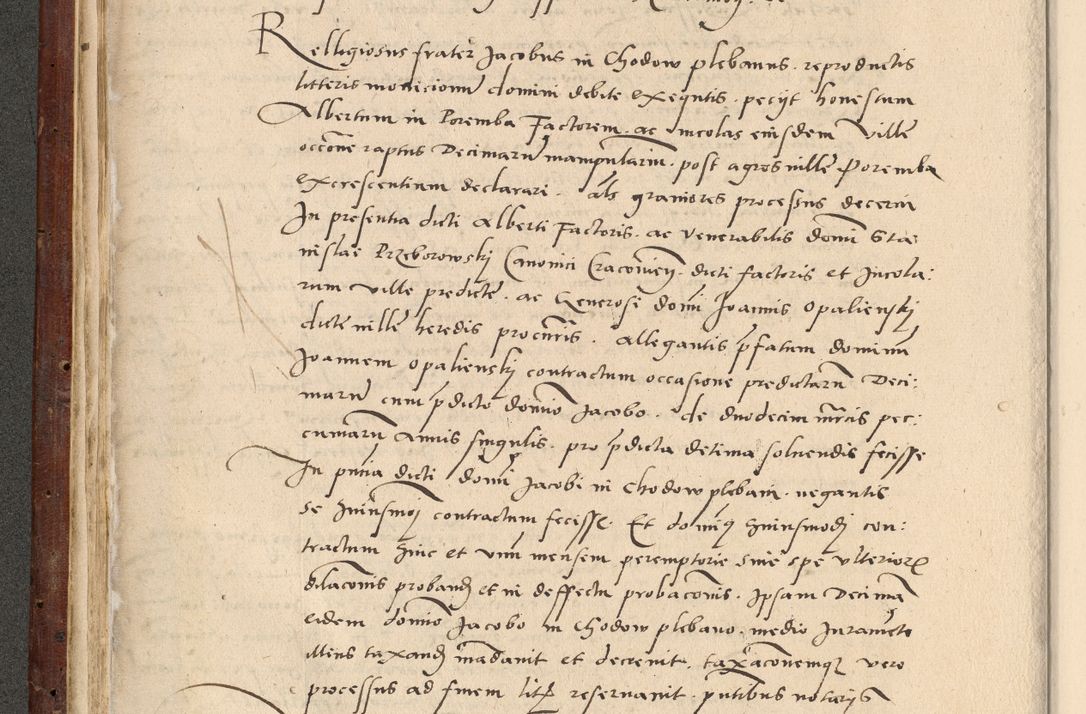 Religiosus frater Jacobus in Chodow plebanus . reproductis
litteris monicionum domini debite exequtis . pecijt honestum
Albertum in Poremba Factorem . ac incolas eiusdem Ville
occone raptus Decimaru manipularium . post agros ville Poremba
excrescentium declarari . als graviores processus decerni
In presentia dicti Alberti Factoris . ac venerabilis domi Sta
nislae Przeborowskj Canonici Cracovien . dicti factoris et Incola:
rum ville predicte . ac Generosi domi Joannis Opalienskj
dicte ville heredis procuris . allegantis pfatum dominum
Joannem Opalienskj contractum occasione predictaru Deci:
maru cum pdicto domio Jacobo . de duodecim mrcis pec:
cuniaru annis singulis . pro pdicta decima solvendis fecisse
In pntia dicti domi Jacobi in Chodow plebani . negantis
se huiusmoj contractum fecisse . Et domig huiusmodj con:
tractum hinc et vnu mensem peremptorie sine spe vlterior
dilaconis proband et in deffectu probaconis . Ipsam Decima
eidem domio Jacobo in Chodow plebano . medio Juramto
illius taxand madavit et decrevit . taxaconemq vero
processus ad finem litis reservavit . pntibus notarijs